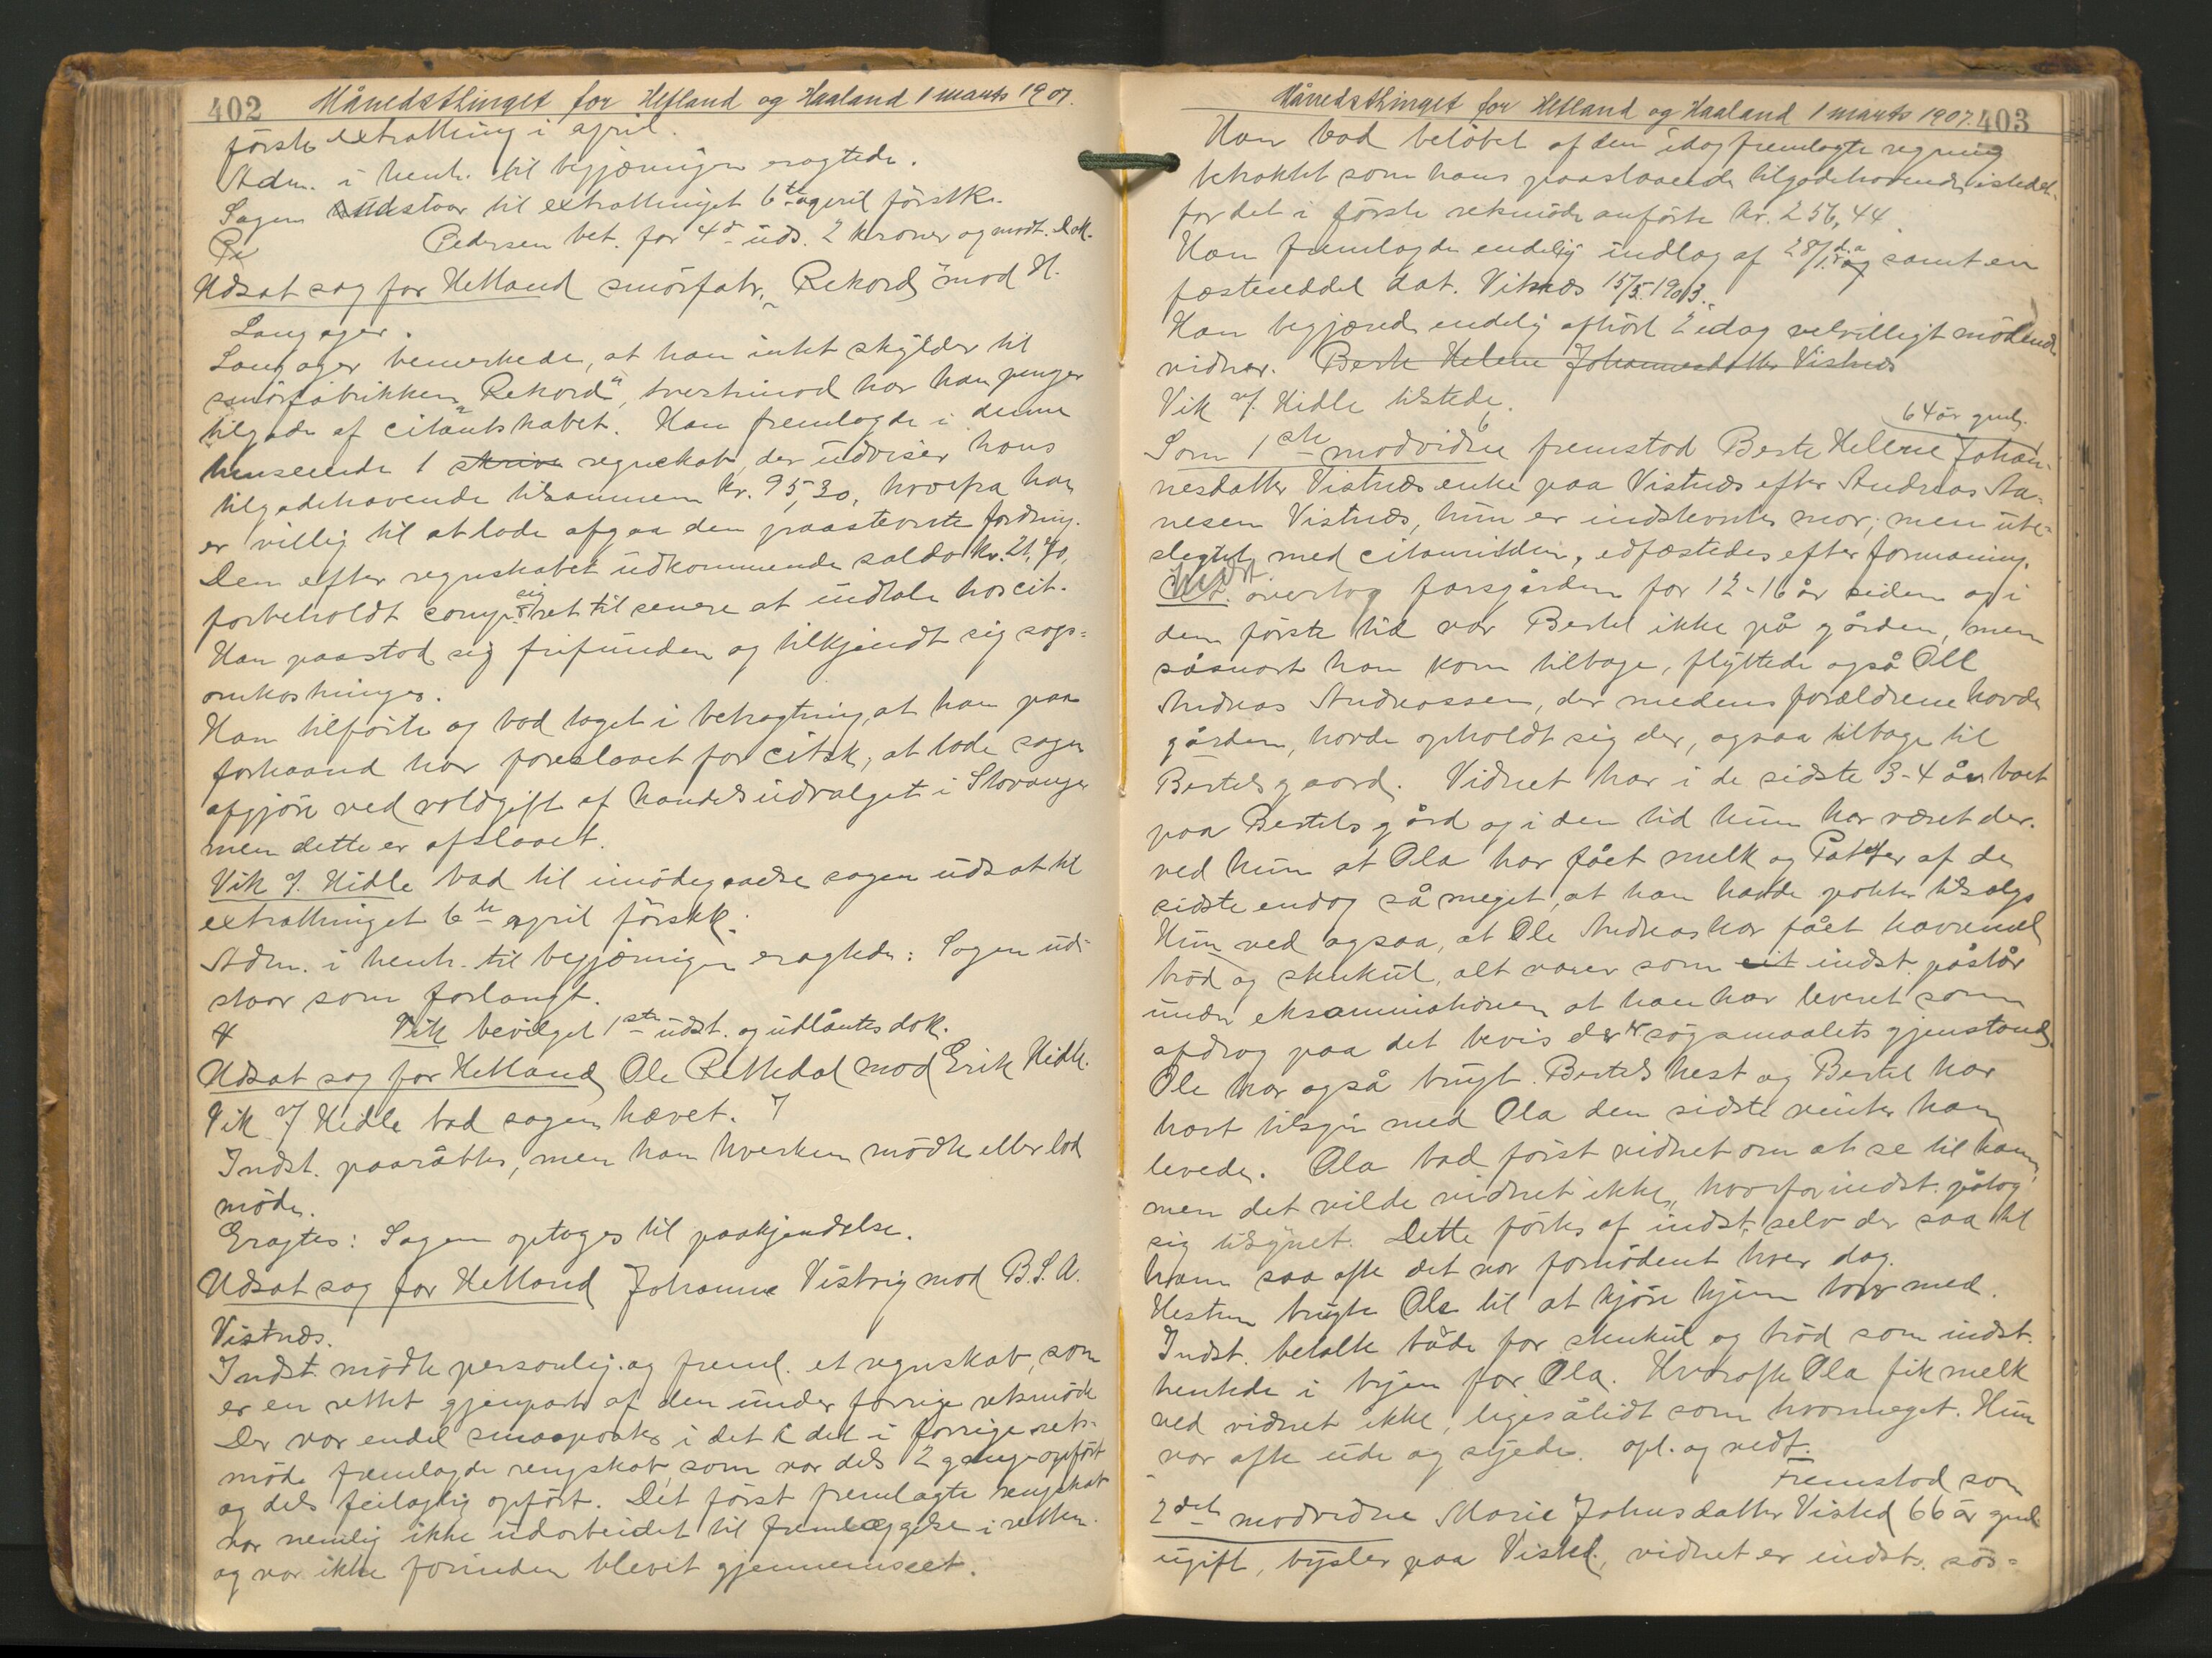 402 Månedsthinget for Hetland og Haaland 1 marts 1907.
første extratthing i april.
Adm. i henh. til begjæringen eragtede.
Sagen udstaar til extratthinget 6te april førstk.
Pedersen bet. for 4d uds. 2 kroner og modt. Dok.
Udsat sag for Hetland smörfabr. "Rekord" mod H.
Langager.
Langager bemerkede, at han intet skylder til
smörfabrikken "Rekord", tvertimod har han penger
tilgode af citantskabet. Han fremlagde i denne
henseende 1 skrive regnskab, der udviser hans
tilgodehavende tilsammen kr. 95,30, hvorfra han
er villig til at lade afgaa den paastevnte fordring.
Den efter regnskabet udkommende saldo kr. 21,70,
forbeholdt comp. sig ret til senere at indtale hos cit.
Han paastod sig frifunden og tilkjendt sig sags-
omkostninger.
Han tilførte og bad taget i betragtning, at han paa
forhaand har foreslaaet for citsk, at lade sagen
afgjøre ved voldgift af handelsudvalget i Stavanger
men dette er afslaaet.
Vik f. Hidle bad til imödegaaelse sagen udsat til
extratthinget 6te april førstk.
Adm. i henh. til begjæringen eragtede: Sagen ud-
staar som forlangt.
Vik bevilget 1ste udst. og udlåntes dok.
Udsat sag for Hetland Ole Rettedal mod Erik Hidle.
Vik f Hidle bad sagen hævet.
Indst. paaråbtes, men han hverken mödte eller lod
möde.
Eragtes: Sagen optages til paakjendelse.
Udsat sag for Hetland Johanne Vistvig mod B. S. A.
Vistnes.
Indst. mödte personlig og freml. et regnskab, som
er en rettet gjenpart af den under forrige retsmöde
Der var endel smaaposter i det i forrige rets-
möde fremlagde rengskab, som var dels 2 gange opført
og dels feilagtig opfört. Det först fremlagte rengskab
var nemlig ikke udarbeidet til fremlæggelse i retten
og var ikke forinden blevet gjennemseet.
Månedsthinget for Hetland og Haaland 1 marts 1907. 403
Han bad belöbet af den idag fremlagte regning
betraktet som hans paastaaende tilgodehavende istedet-
for det i første retsmöde anförte kr. 256,44.
Han fremlagde endelig indlag af 28/1 d.a. samt en
fæsteseddel dat. Vistnes 15/5 1903.
Han begjæred endelig afhört 2 idag velvilligt mödende
vidner. Berte Helene Johannesdatter Vistnes
Vik f. Hidle tilstede.
64 år gml.
Som 1ste modvidne fremstod Berte Helene Johan-
nesdatter Vistnes enke paa Vistnes efter Andreas Aa-
nesen Vistnes, hun er indstevntes mor; men ube-
slegtet med citantinden, edfæstedes efter formaning.
Indst. overtog farsgården for 12-16 år siden og i
den förste tid var Bertel ikke på gården, men
såsnart han kom tilbage, flyttede også Oll
Andreas Andreassen, der medens forældrene havde
gården, havde opholdt sig der, ogsaa tilbage til
Bertels gaard. Vidnet har i de sidste 3-4 år boet
paa Bertels gård og i den tid hun har været der.
ved hun at Ola har fået melk og Poteter af de
sidste endog så meget, at han havde poteter tilsalgs
Hun ved ogsaa, at Ole Andreas har fået havremel
bröd og stenkul, alt varer som cit indst. påstår
under eksaminationen at han har leveret som
afdrag paa det bevis der er søgsmaalets gjenstand.
Ole har også brugt Bertels hest og Bertel har
havt tilsyn med Ola den sidste vinter han
levede. Ola bad först vidnet om at se til ham,
men det vilde vidnet ikke, hvorfor indst. påtog
sig tilsynet. Dette førtes af indst. selv der saa til
ham saa ofte det var fornödent hver dag.
Hesten brugte Ola til at kjøre hjem torv med.
Indst. betalte både for stenkul og bröd som indst.
hentede i byen for Ola. Hvorofte Ola fik melk
ved vidnet ikke, ligesålidt som hvormeget. Hun
var ofte ude og syede. opl. og vedt.
Fremstod som
2det modvidne Marie Johnsdatter Visted 66 år gml
ugift, bysler paa Visted, vidnet er indst. sös-